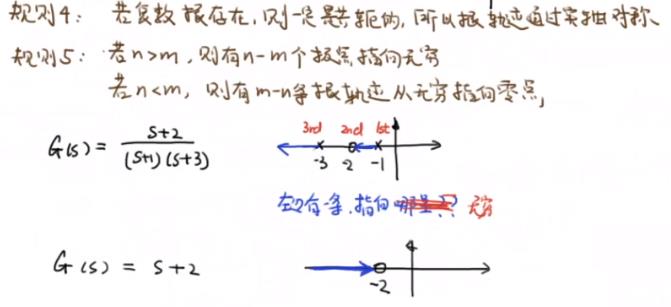 规则4: 若复数根存在,则一定是共轭的,所以根轨迹通过实轴对称、
规则5: 若n>m,则有n-m个极点指向无穷
若n<m,则有m-n条根轨迹从无穷指向零点,
G(s) = (s+2)/((s+1)(s+3))
3rd 2nd 1st
-3 -2 -1
左边有一条,指向 ?? 无穷
G(s) = s+2
-2